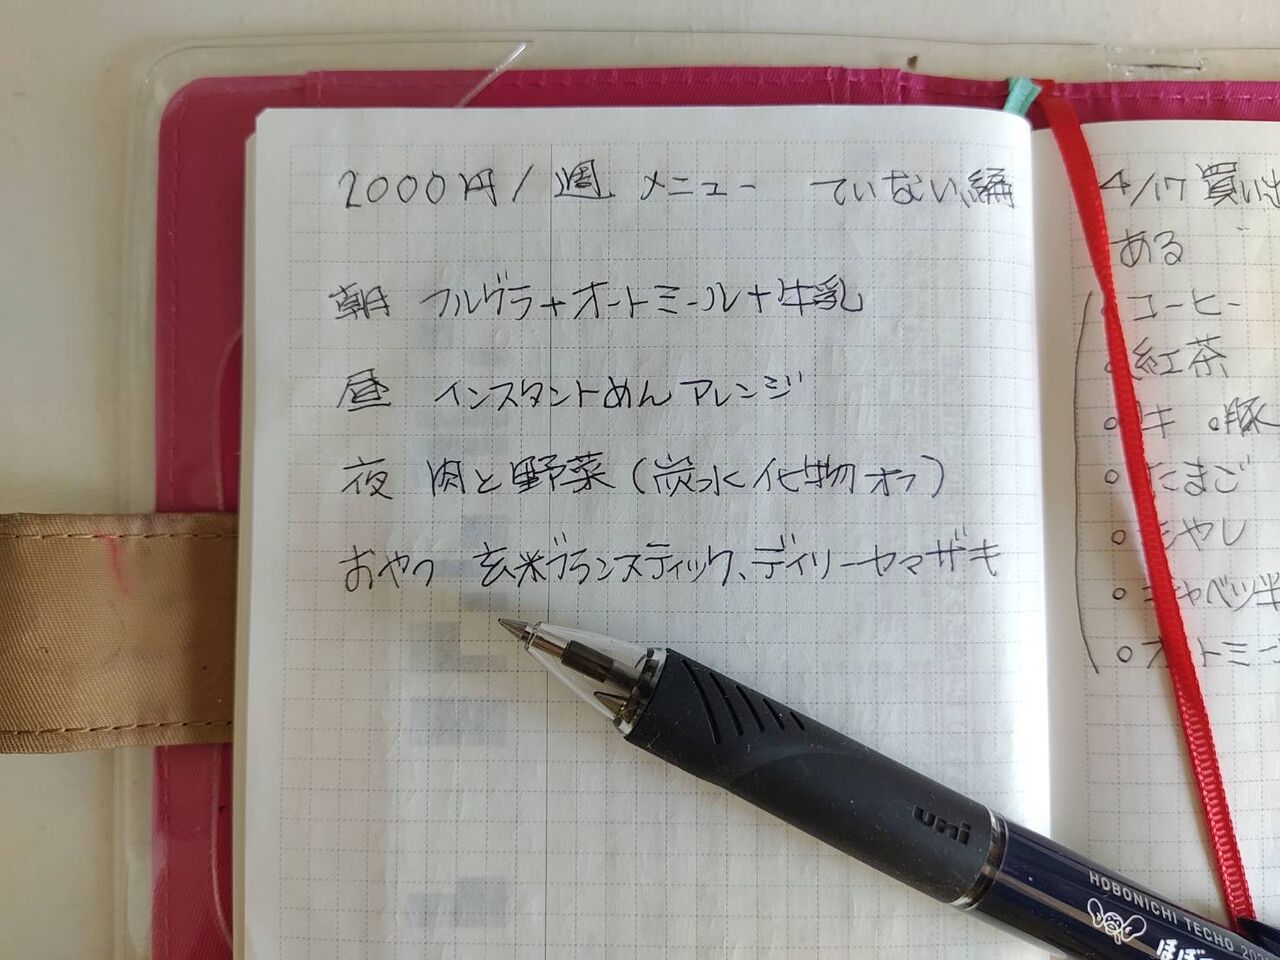 2000円/週 メニュー ていない編
朝 フルグラ+オートミール+牛乳
昼 インスタントめんアレンジ
夜 肉と野菜(炭水化物オフ)
おやつ 玄米ブランスティック、デイリーヤマザキ
4/17 買い出
ある
コーヒー
紅茶
キ 豚
たまご
もやし
キャベツ半
オートミー
uni
HOBONICHI TECHO
ほぼ